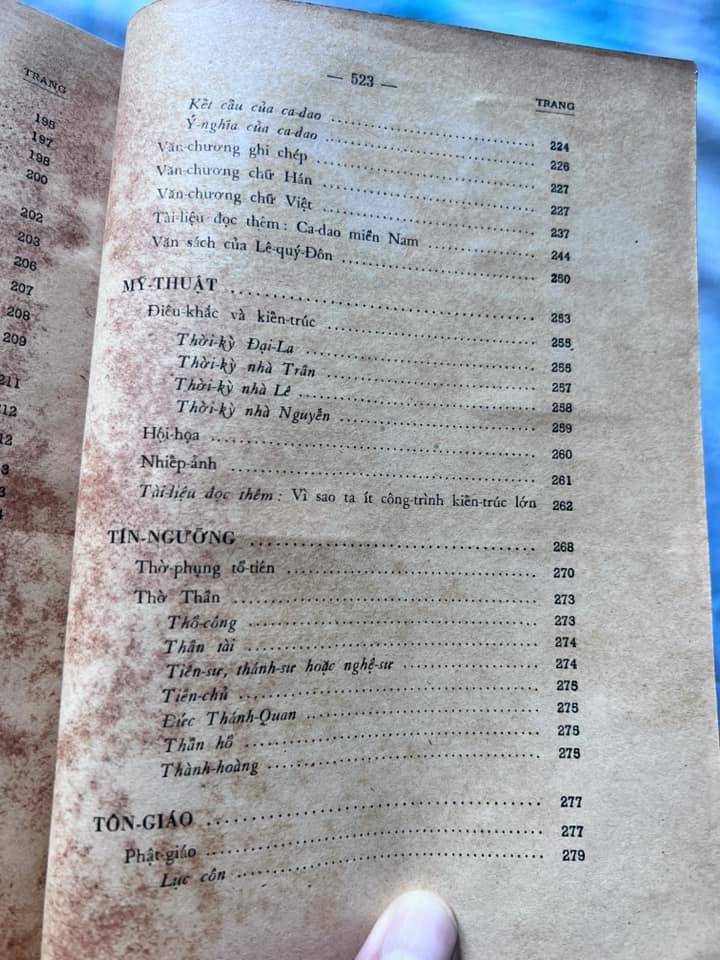 TRANG
195
197
198
200
202
203
206
207
208
209
211
212
12
3
3
— 523 —
TRANG
Kết cấu của ca-dao ........ 224
Ý-nghĩa của ca-dao ........ 226
Văn-chương ghi chép ........ 227
Văn-chương chữ Hán ........ 227
Văn-chương chữ Việt ........ 237
Tài-liệu đọc thêm : Ca-dao miền Nam ........ 244
Văn sách của Lê-quý-Đôn ........ 250
MỸ-THUẬT ........ 253
Điêu-khắc và kiến-trúc ........ 255
Thời-kỳ Đại-La ........ 255
Thời-kỳ nhà Trần ........ 257
Thời-kỳ nhà Lê ........ 258
Thời-kỳ nhà Nguyễn ........ 259
Hội-họa ........ 260
Nhiếp-ảnh ........ 261
Tài-liệu đọc thêm : Vì sao ta ít công-trình kiến-trúc lớn 262
TÍN-NGƯỠNG ........ 268
Thờ-phụng tổ-tiên ........ 270
Thờ Thần ........ 273
Thổ-công ........ 273
Thần tài ........ 274
Tiên-sư, thánh-sư hoặc nghệ-sư ........ 274
Tiền-chủ ........ 275
Đức Thánh-Quan ........ 275
Thần hổ ........ 275
Thành-hoàng ........ 275
TÔN-GIÁO ........ 277
Phật-giáo ........ 277
Lục côn ........ 279